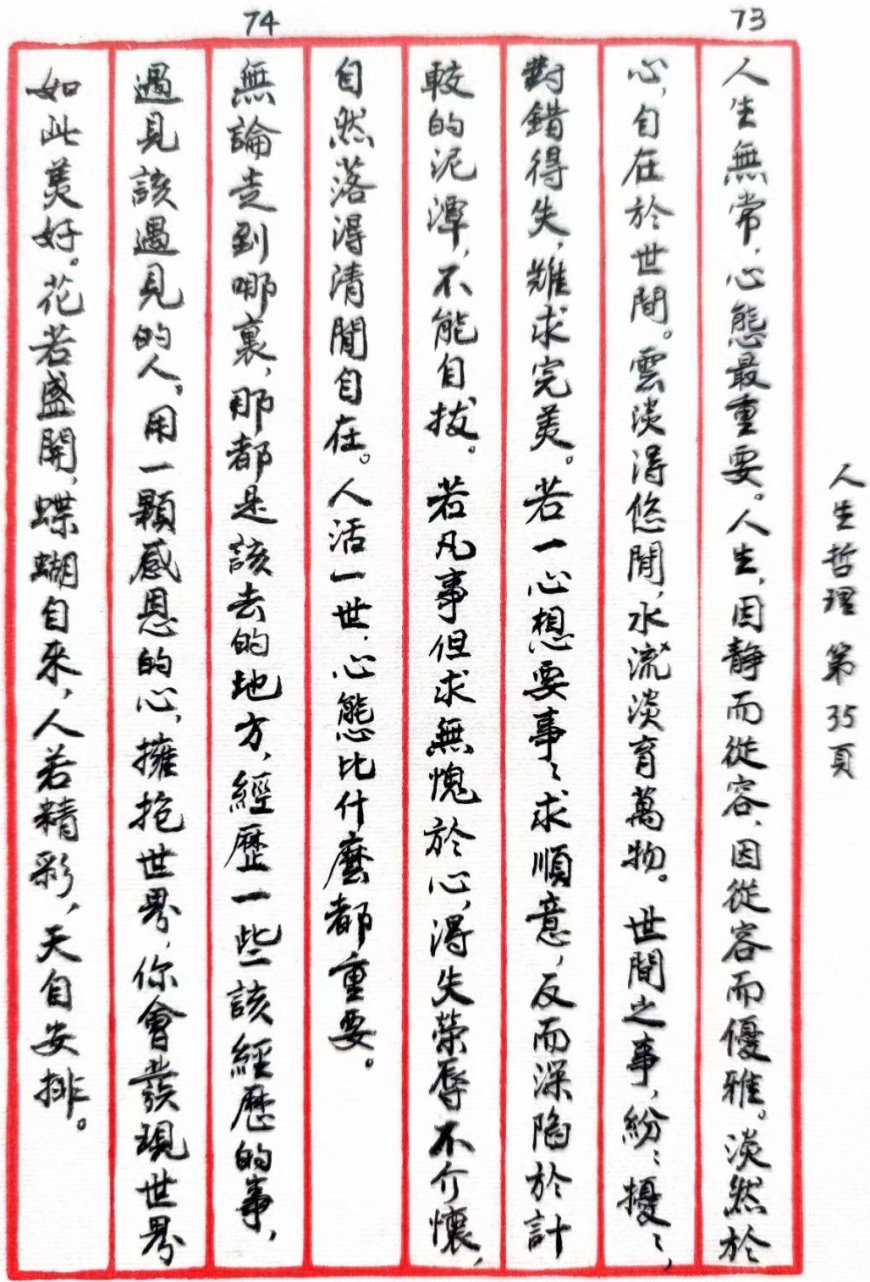 人生哲理 第35頁
73
人生無常，心態最重要。人生，因靜而從容，因從容而優雅。淡然於
心，自在於世間。雲淡得悠閒，水流淡育萬物。世間之事，紛〻擾〻，
對錯得失，難求完美。若一心想要事〻求順意，反而深陷於計
較的泥潭，不能自拔。若凡事但求無愧於心，得失榮辱不介懷，
自然落得清閒自在。人活一世，心態比什麼都重要。
74
無論走到哪裏，那都是該去的地方，經歷一些該經歷的事，
遇見該遇見的人。用一顆感恩的心，擁抱世界，你會發現世界
如此美好。花若盛開，蝶蝴自來，人若精彩，天自安排。